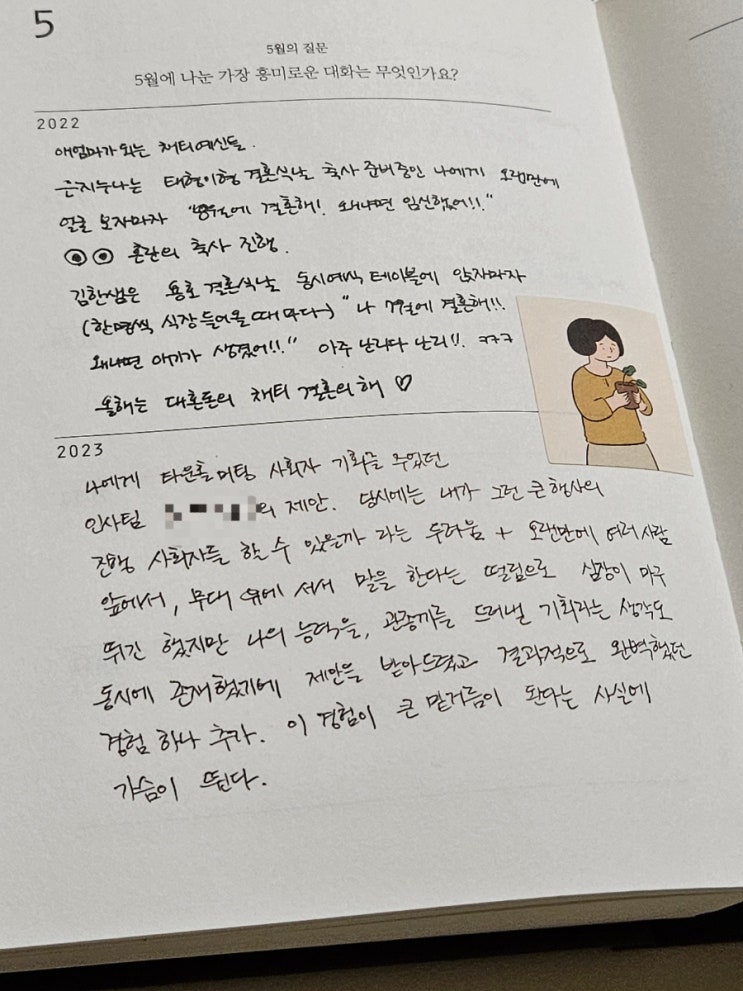 5
5월의 질문
5월에 나눈 가장 흥미로운 대화는 무엇인가요?
2022
애엄마가 되는 채터예신들.
은지누나는 태형이형 결혼식날 축사 준비중인 나에게 오랜만에
얼굴 보자마자 결혼해! 왜냐면 임신했어!!."
혼란의 축사 진행.
김한샘은 용호 결혼식날 동시예식 테이블에 앉자마자
(한명씩 식장 들어올 때 마다~) "나 7월에 결혼해!!
왜냐면 아기가 생겼어!!." 아주 난리다 난리!!. ㅋㅋㅋ
올해는 대혼돈의 채터 결혼의 해 ♡
2023
나에게 타운홀 미팅 사회자 기회를 주었던
인사팀 의 제안. 당시에는 내가 그런 큰 행사의
진행 사회자를 할 수 있을까 라는 두려움 + 오랜만에 여러 사람
앞에서, 무대 위에 서서 말을 한다는 떨림으로 심장이 마구
뛰긴 했지만 나의 능력을, 관종끼를 드러낼 기회라는 생각도
동시에 존재했기에 제안을 받아드렸고 결과적으로 완벽했던
경험 하나 추가. 이 경험이 큰 밑거름이 된다는 사실에
가슴이 뛴다.